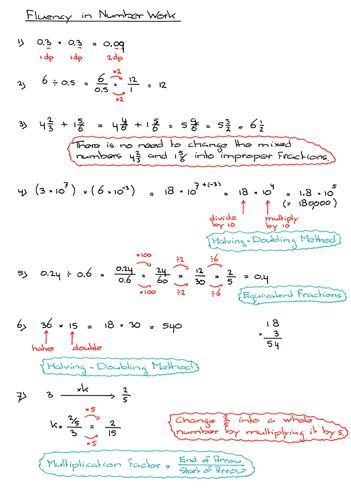 Fluency in Number Work
1) 0.3 × 0.3 = 0.09
1dp 1dp 2dp
×2
2) 6 ÷ 0.5 = 6/0.5 = 12/1 = 12
×2
3) 4 2/3 + 1 5/6 = 4 4/6 + 1 5/6 = 5 9/6 = 5 3/2 = 6 1/2
There is no need to change the mixed
numbers 4 2/3 and 1 5/6 into improper fractions.
4) (3×10^7) × (6×10^-3) = 18 × 10^7+(-3) = 18 × 10^4 = 1.8 × 10^5
(= 180,000)
divide by 10 multiply by 10
Halving-Doubling Method
×100 ÷2 ÷6
5) 0.24 ÷ 0.6 = 0.24/0.6 = 24/60 = 12/30 = 2/5 = 0.4
×100 ÷2 ÷6
Equivalent Fractions
6) 36 × 15 = 18 × 30 = 540
halve double
18
× 3
54
Halving-Doubling Method
7) 3 ×k 2/5
×5
k = 2/5/3 = 2/15
×5
Change 2/5 into a whole
number by multiplying it by 5.
Multiplication factor = End of Arrow/Start of Arrow